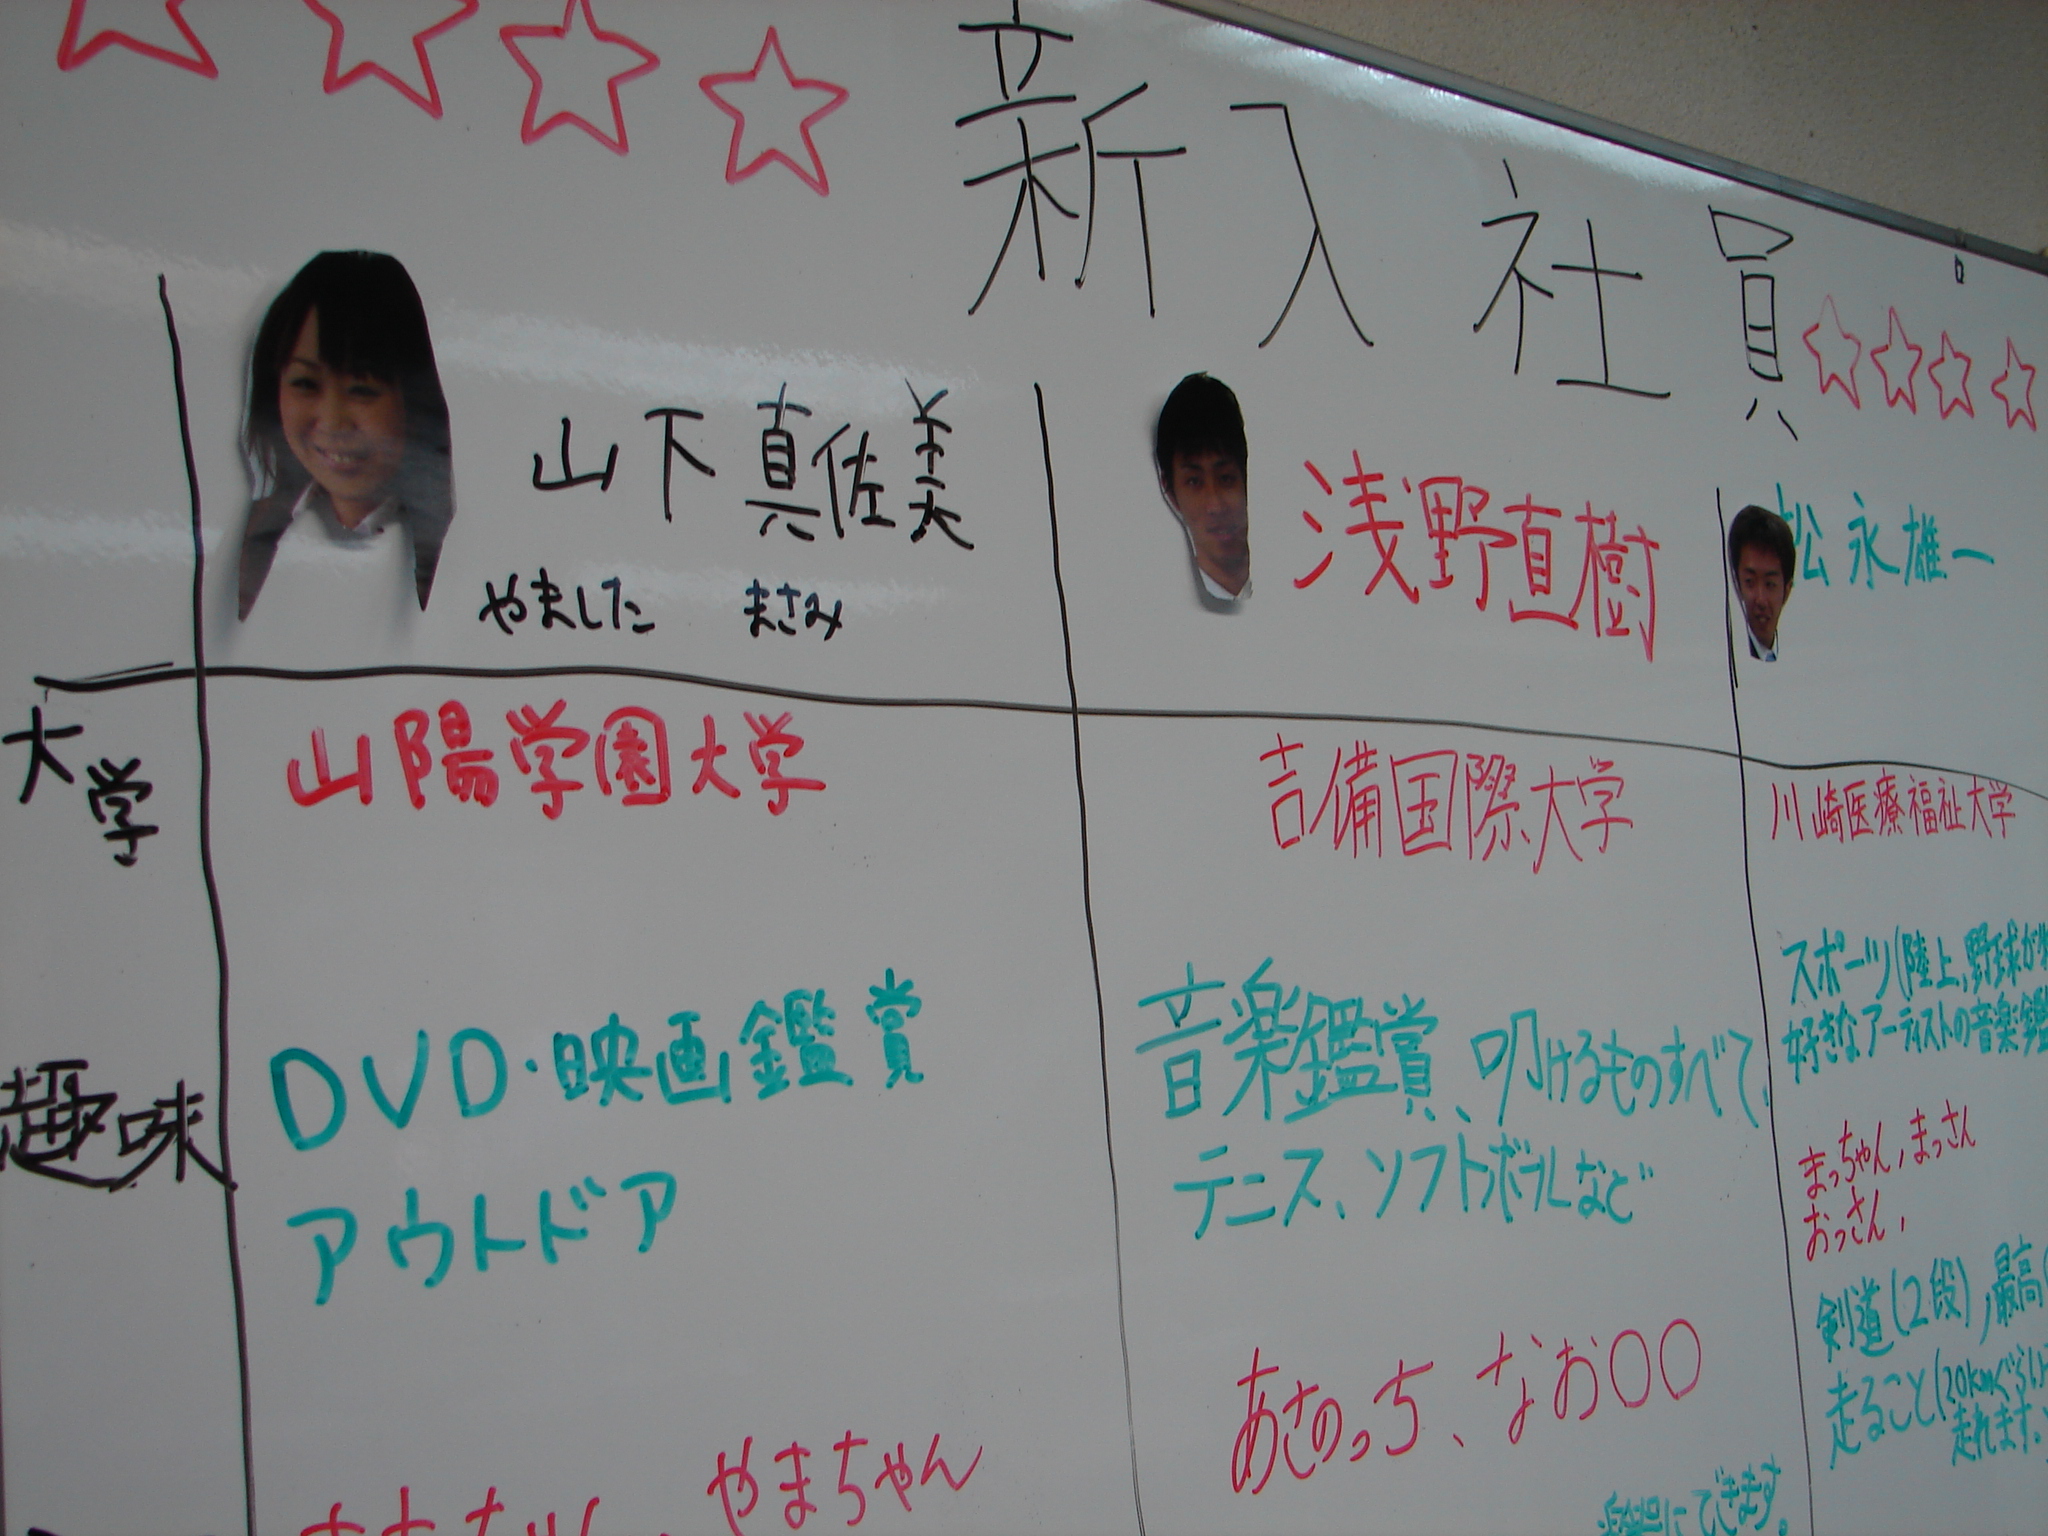 新入社員
山下真佐美
やました まさみ
浅野直樹
松永雄一
大学
山陽学園大学
吉備国際大学
川崎医療福祉大学
趣味
DVD・映画鑑賞
アウトドア
音楽鑑賞、叩けるものすべて、
テニス、ソフトボールなど
スポーツ(陸上、野球が
好きなアーティストの音楽鑑
やまちゃん
あさのっち、なお〇〇
まっちゃん,まっさん
おっさん,
剣道(2段),最高
走ること(20kmぐらい
走れます。
にできます。